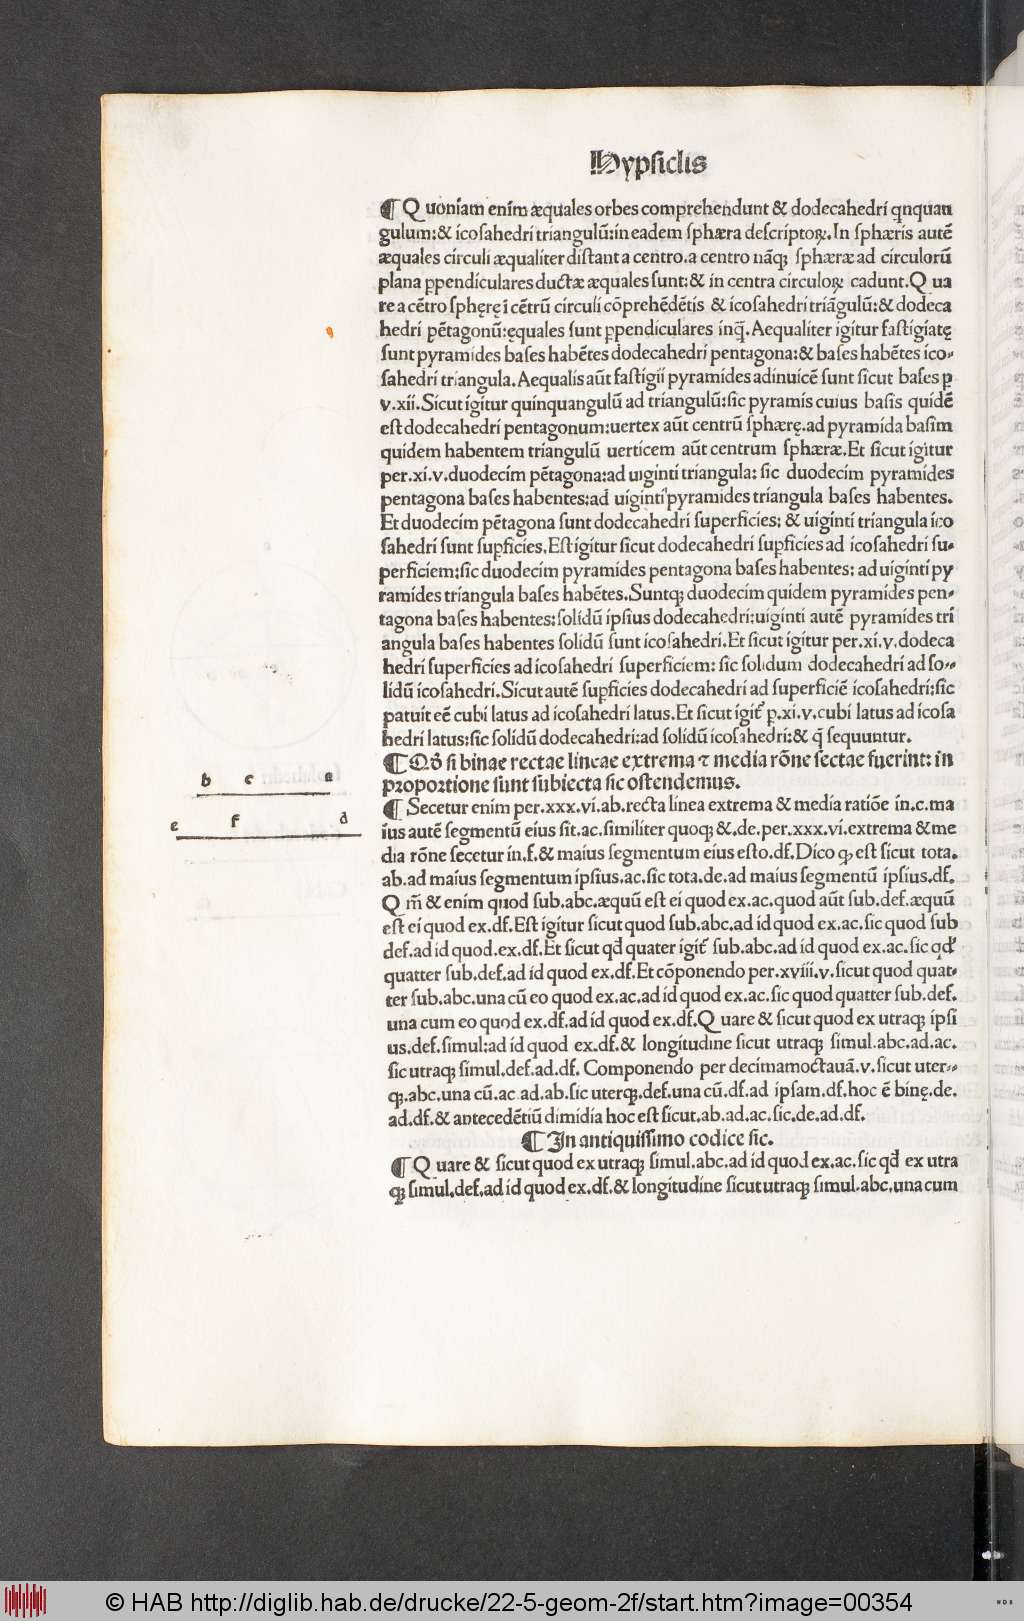 Hypsiclis
¶ Quoniam enim æquales orbes comprehendunt & dodecahedri qnquan
gulum:& icosahedri triangulū:in eadem sphæra descriptoꝝ.In sphæris autē
æquales circuli æqualiter distant a centro.a centro nāqꝫ sphæræ ad circulorū
plana ꝑpendiculares ductæ æquales sunt:& in centra circuloꝝ cadunt.Qua
re a cētro sphęrę ī cētrū circuli cōprehēdētis & icosahedri triāgulū:& dodeca
hedri pētagonū:ęquales sunt ꝑpendiculares inq̄.Aequaliter igitur fastigiatę
sunt pyramides bases habētes dodecahedri pentagona:& bases habētes ico-
sahedri triangula.Aequalis aūt fastigii pyramides adinuicē sunt sicut bases ꝑ
v.xii.Sicut igitur quinquangulū ad triangulū:sic pyramis cuius basis quidē
est dodecahedri pentagonum:uertex aūt centrū sphærę.ad pyramida basim
quidem habentem triangulū uerticem aūt centrum sphæræ.Et sicut igitur
per.xi.v.duodecim pētagona:ad uiginti triangula: sic duodecim pyramides
pentagona bases habentes:ad uiginti pyramides triangula bases habentes.
Et duodecim pētagona sunt dodecahedri superficies: & uiginti triangula ico
sahedri sunt suꝑficies.Est igitur sicut dodecahedri suꝑficies ad icosahedri su-
perficiem:sic duodecim pyramides pentagona bases habentes: ad uiginti py
ramides triangula bases habētes.Suntqꝫ duodecim quidem pyramides pen-
tagona bases habentes:solidū ipsius dodecahedri:uiginti autē pyramides tri
angula bases habentes solidū sunt icosahedri.Et sicut igitur per.xi.v.dodeca
hedri superficies ad icosahedri superficiem: sic solidum dodecahedri ad so-
lidū icosahedri.Sicut autē suꝑficies dodecahedri ad superficiē icosahedri:sic
patuit eē cubi latus ad icosahedri latus.Et sicut igit̃ ꝑ.xi.v.cubi latus ad icosa
hedri latus:sic solidū dodecahedri:ad solidū icosahedri:& q̄ sequuntur.
¶ Qđ si binae rectae lineae extrema ⁊ media rōne sectae fuerint: in
proportione sunt subiecta sic ostendemus.
b c a
e f d
¶ Secetur enim per.xxx.vi.ab.recta linea extrema & media ratiōe in.c.ma
ius autē segmentū eius sit.ac.similiter quoqꝫ &.de.per.xxx.vi.extrema & me
dia rōne secetur in.f.& maius segmentum eius esto.df.Dico ꝙ est sicut tota.
ab.ad maius segmentum ipsius.ac.sic tota.de.ad maius segmentū ipsius.df.
Qm̄ & enim quod sub.abc.æquū est ei quod ex.ac.quod aūt sub.def.æquū
est ei quod ex.df.Est igitur sicut quod sub.abc.ad id quod ex.ac.sic quod sub
def.ad id quod.ex.df.Et sicut qđ quater igit̃ sub.abc.ad id quod ex.ac.sic qđ
quatter sub.def.ad id quod ex.df.Et cōponendo per.xviii.v.sicut quod quat-
ter sub.abc.una cū eo quod ex.ac.ad id quod ex.ac.sic quod quatter sub.def.
una cum eo quod ex.df.ad id quod ex.df.Quare & sicut quod ex utraqꝫ ipsi
us.def.simul:ad id quod ex.df.& longitudine sicut utraqꝫ simul.abc.ad.ac.
sic utraqꝫ simul.def.ad.df. Componendo per decimamoctauā.v.sicut uter-
qꝫ.abc.una cū.ac.ad.ab.sic uterqꝫ.def.una cū.df.ad ipsam.df.hoc ē binę.de.
ad.df.& antecedētiū dimidia hoc est sicut.ab.ad.ac.sic.de.ad.df.
¶ In antiquissimo codice sic.
¶ Quare & sicut quod ex utraqꝫ simul.abc.ad id quod ex.ac.sic qđ ex utra
qꝫ simul.def.ad id quod ex.df.& longitudine sicut utraqꝫ simul.abc.una cum
© HAB http://diglib.hab.de/drucke/22-5-geom-2f/start.htm?image=00354